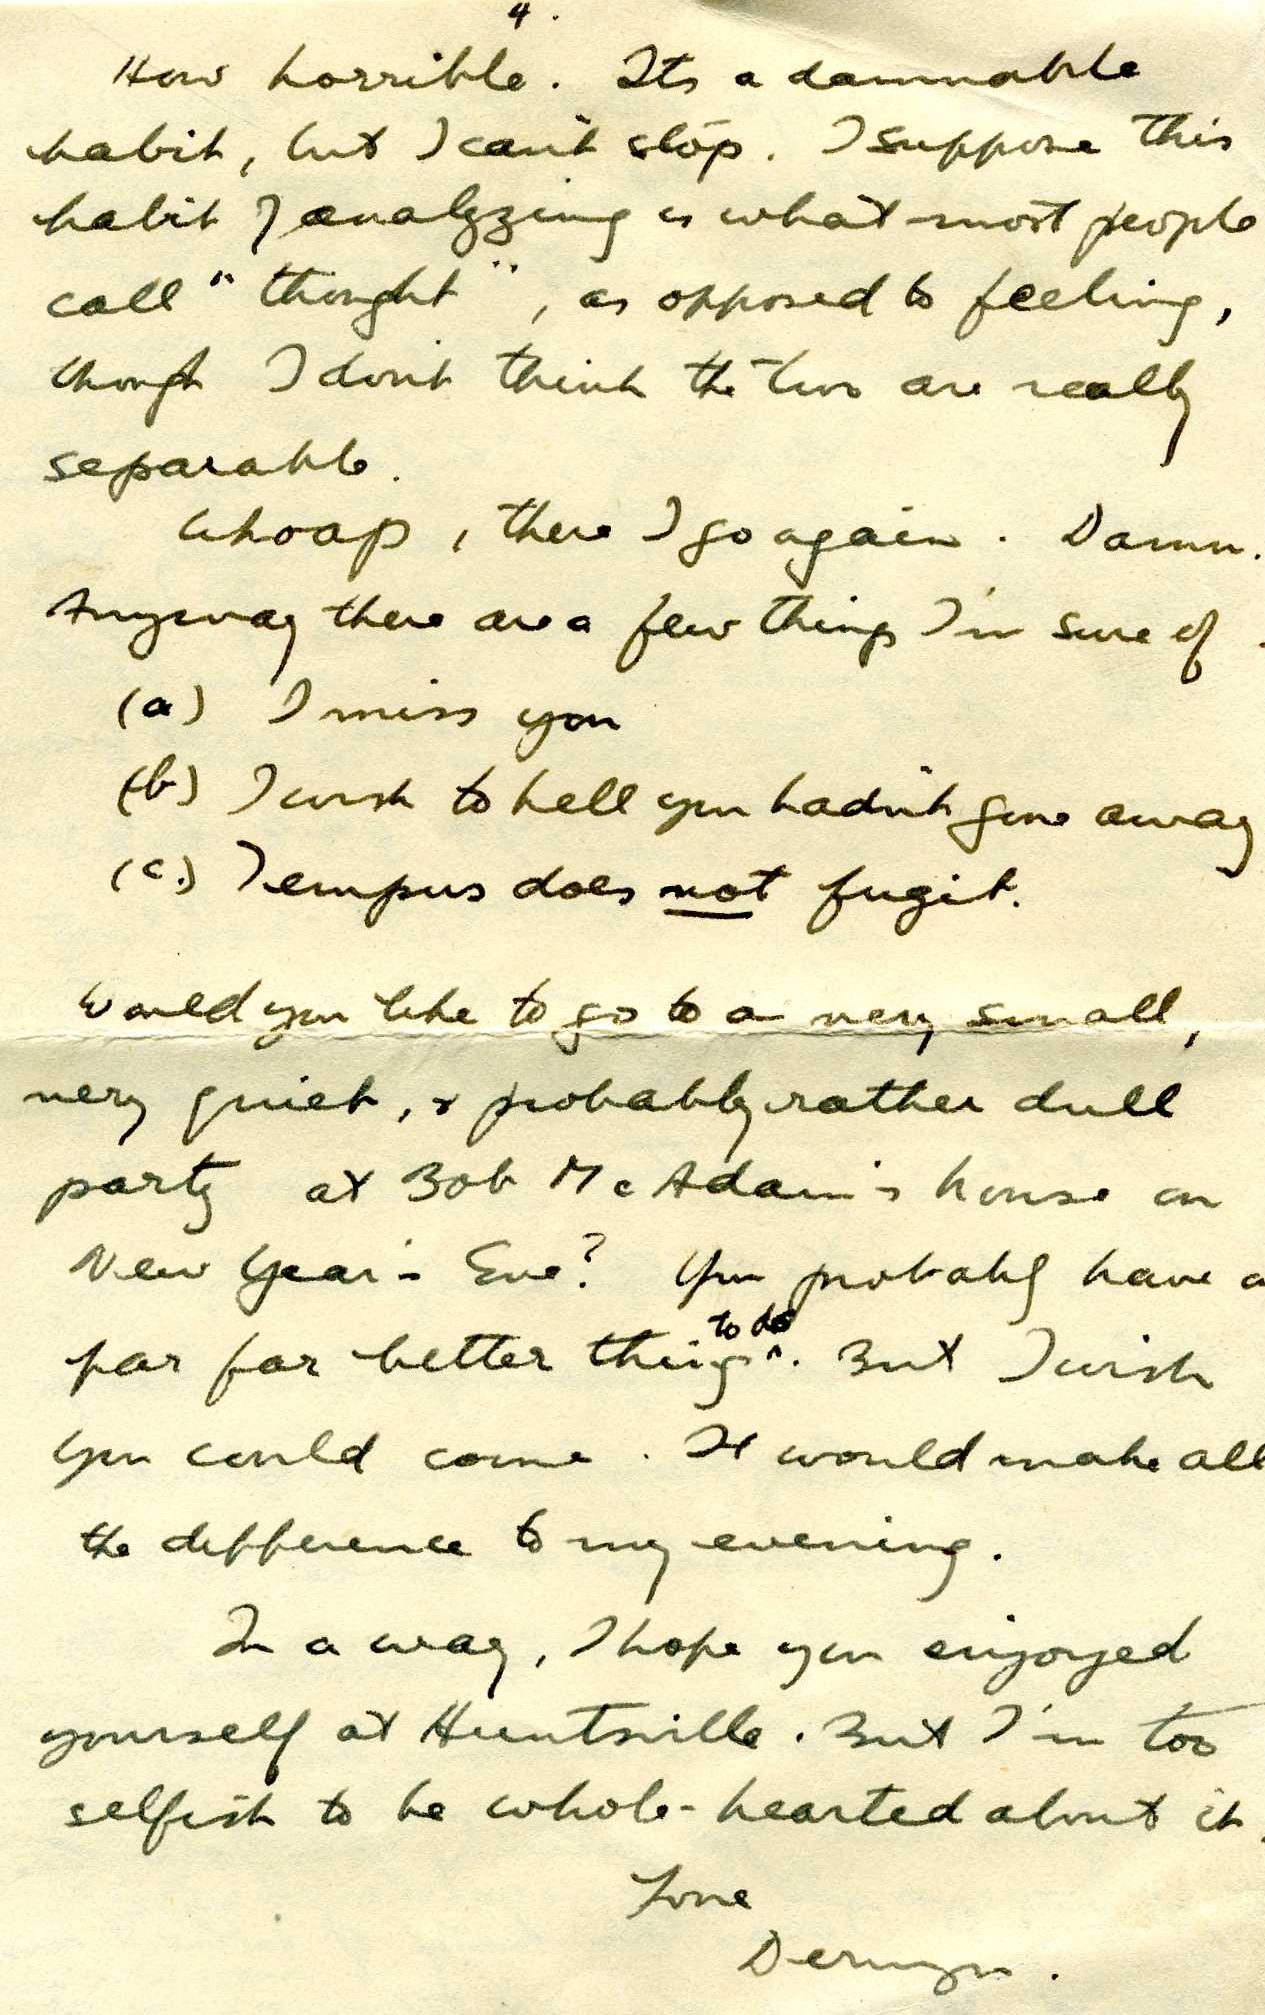 4.
How horrible. Its a damnable
habit, but I can't stop. I suppose this
habit of analyzing is what most people
call "thought", as opposed to feeling,
though I don't think the two are really
separable.
Whoap, there I go again. Damn.
Anyway there are a few things I'm sure of.
(a) I miss you
(b) I wish to hell you hadn't gone away
(c.) Tempus does not fugit.
Would you like to go to a very small,
very quiet, & probably rather dull
party at Bob McAdam's house on
New Year's Eve? You probably have a
far far better thing to do. But I wish
you could come. It would make all
the difference to my evening.
In a way, I hope you enjoyed
yourself at Huntsville. But I'm too
selfish to be whole-hearted about it.
Love
Derwyn.